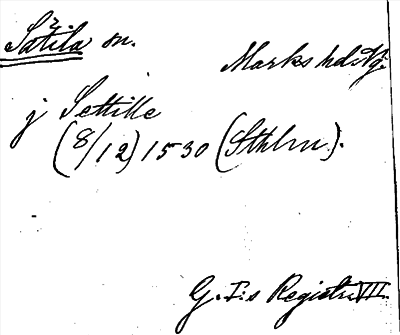 Sätila sn.
Marks hd Vg.
j Settille
(8/12) 1530 (Sthlm).
G. I:s Registr. VII.